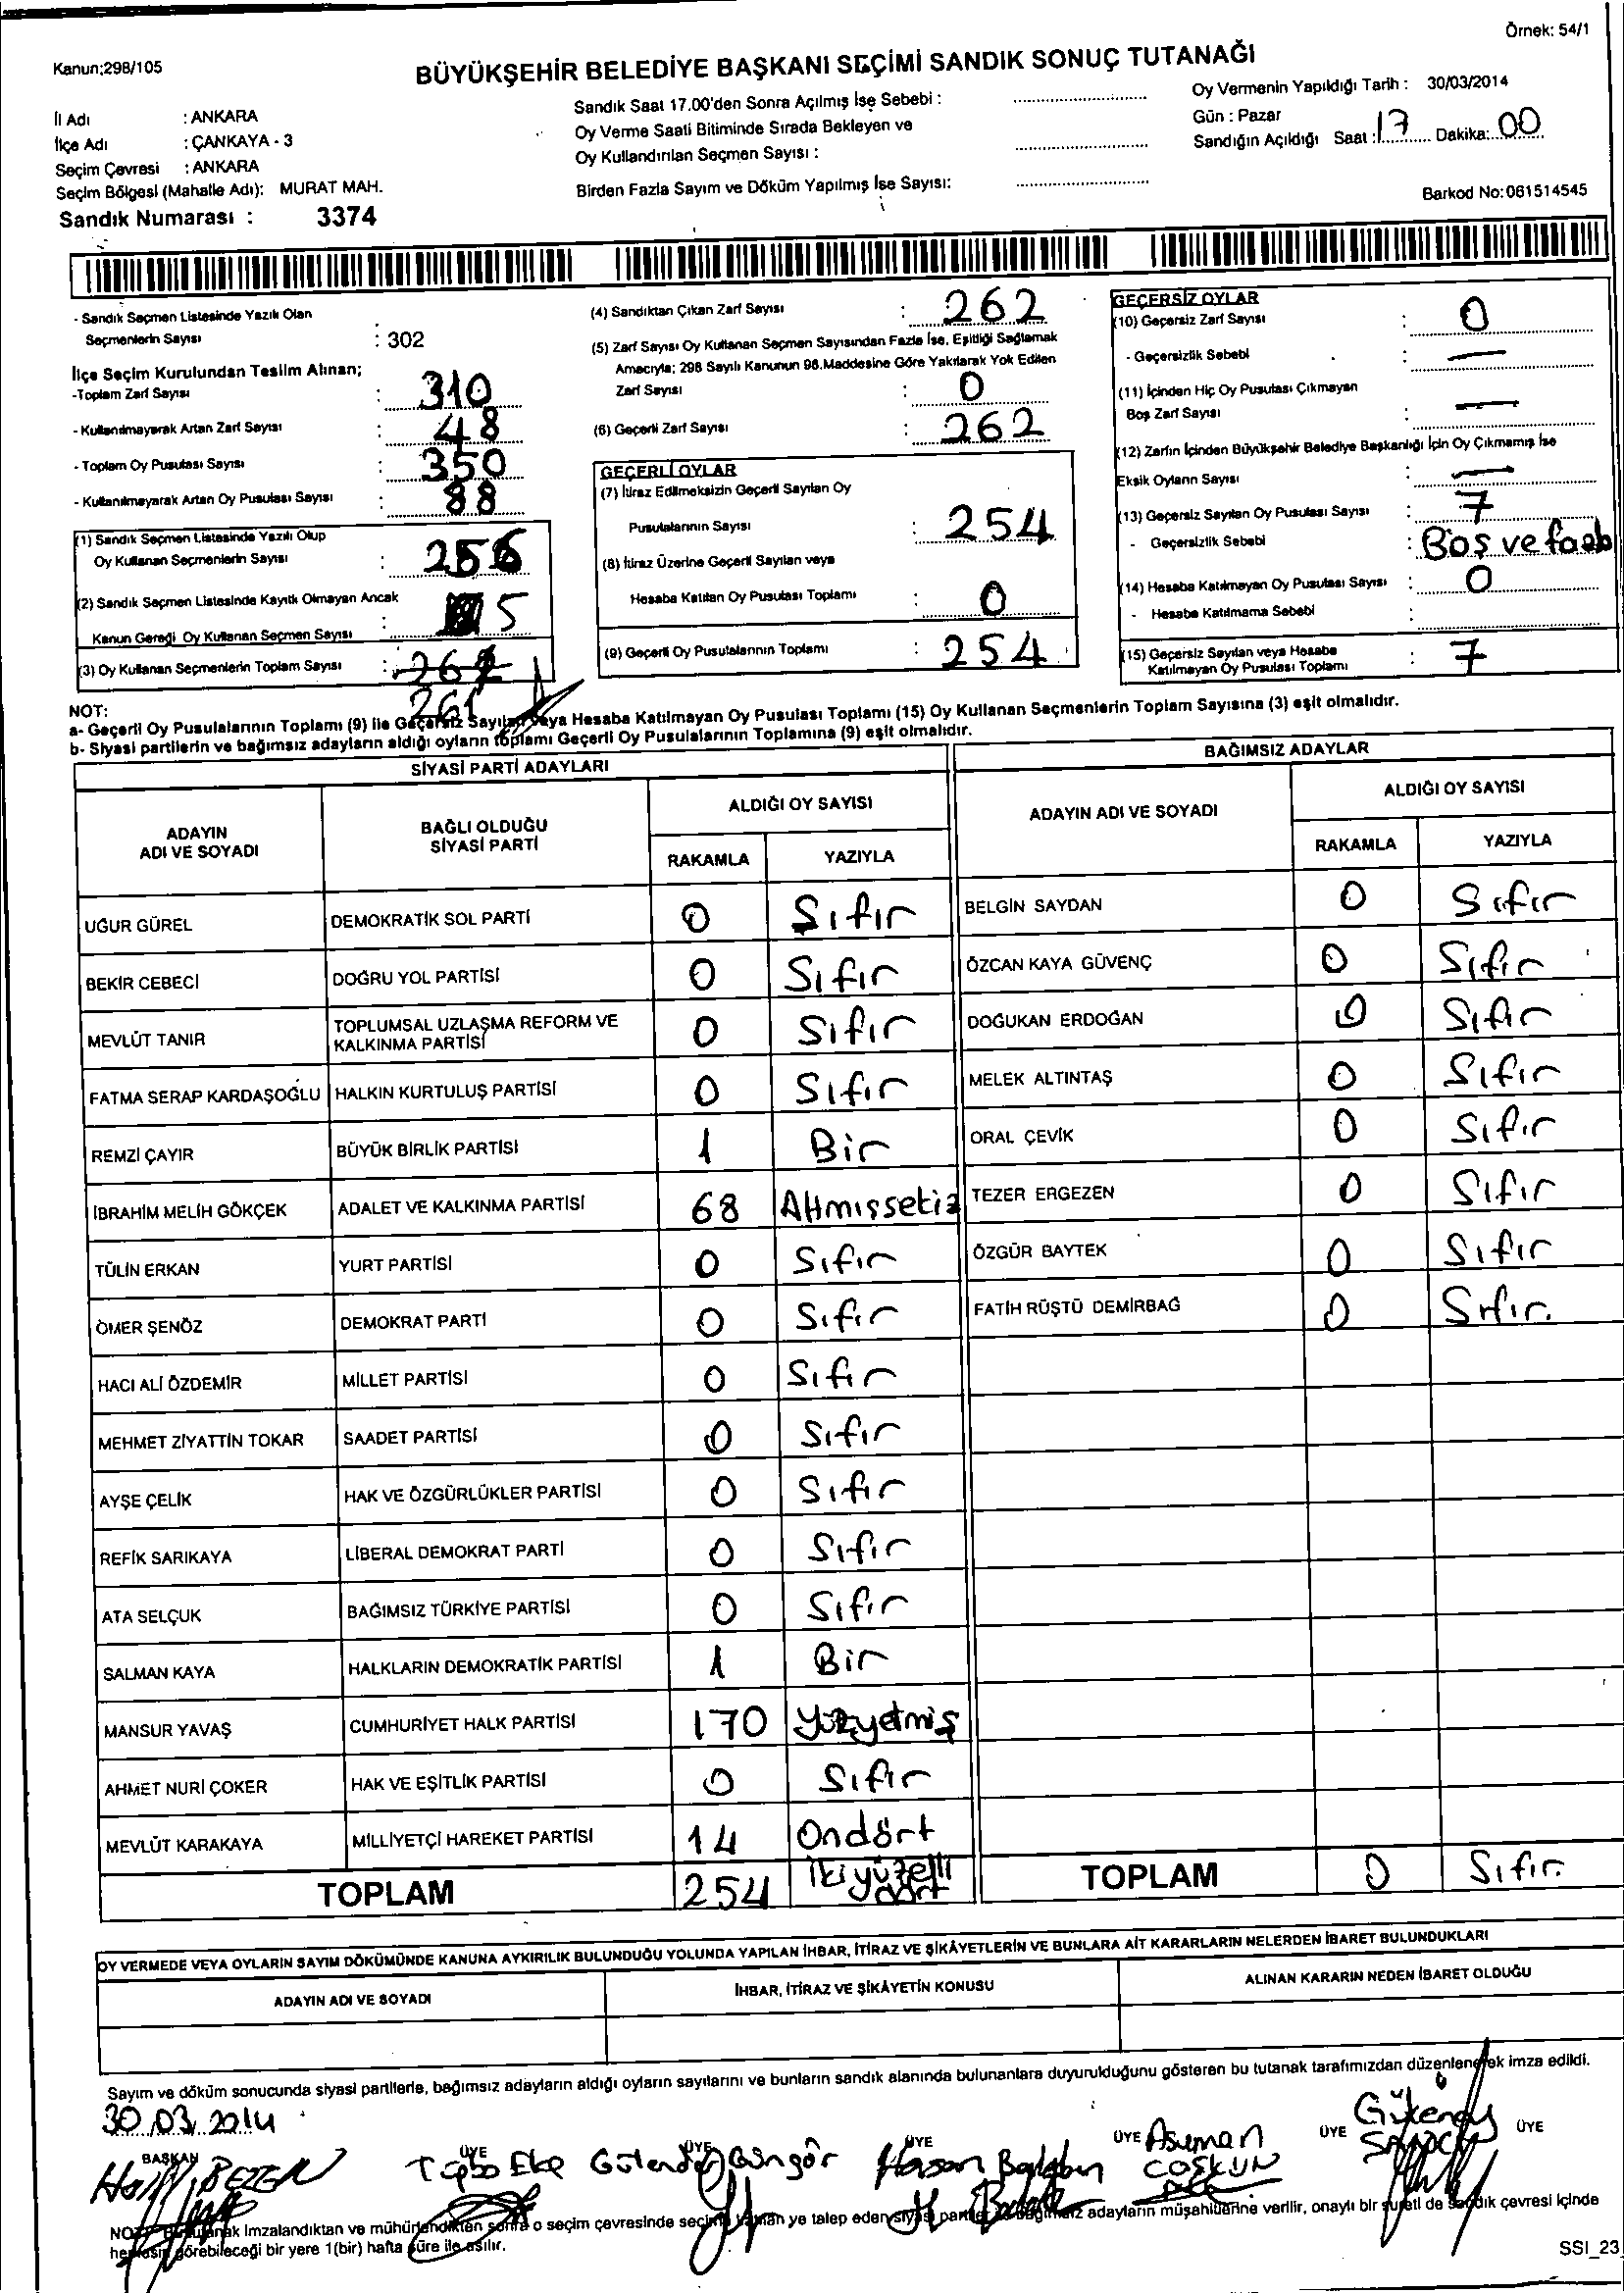 Örnek: 54/1
Kanun;298/105
BÜYÜKŞEHİR BELEDİYE BAŞKANI SEÇİMİ SANDIK SONUÇ TUTANAĞI
İl Adı : ANKARA
İlçe Adı : ÇANKAYA - 3
Seçim Çevresi : ANKARA
Seçim Bölgesi (Mahalle Adı): MURAT MAH.
Sandık Numarası : 3374
Sandık Saat 17.00'den Sonra Açılmış İse Sebebi :
Oy Verme Saati Bitiminde Sırada Bekleyen ve
Oy Kullandırılan Seçmen Sayısı :
Birden Fazla Sayım ve Döküm Yapılmış İse Sayısı:
Oy Vermenin Yapıldığı Tarih : 30/03/2014
Gün : Pazar
Sandığın Açıldığı Saat : 17 Dakika: 00
Barkod No: 061514545
- Sandık Seçmen Listesinde Yazılı Olan
Seçmenlerin Sayısı : 302
İlçe Seçim Kurulundan Teslim Alınan;
-Toplam Zarf Sayısı : 310
- Kullanılmayarak Artan Zarf Sayısı : 48
- Toplam Oy Pusulası Sayısı : 350
- Kullanılmayarak Artan Oy Pusulası Sayısı : 88
(1) Sandık Seçmen Listesinde Yazılı Olup
Oy Kullanan Seçmenlerin Sayısı : 256
(2) Sandık Seçmen Listesinde Kayıtlı Olmayan Ancak
Kanun Gereği Oy Kullanan Seçmen Sayısı : 5
(3) Oy Kullanan Seçmenlerin Toplam Sayısı : 262
261
(4) Sandıktan Çıkan Zarf Sayısı : 262
(5) Zarf Sayısı Oy Kullanan Seçmen Sayısından Fazla İse, Eşitliği Sağlamak
Amacıyla; 298 Sayılı Kanunun 98.Maddesine Göre Yakılarak Yok Edilen
Zarf Sayısı : 0
(6) Geçerli Zarf Sayısı : 262
GEÇERLİ OYLAR
(7) İtiraz Edilmeksizin Geçerli Sayılan Oy
Pusulalarının Sayısı : 254
(8) İtiraz Üzerine Geçerli Sayılan veya
Hesaba Katılan Oy Pusulası Toplamı : 0
(9) Geçerli Oy Pusulalarının Toplamı : 254
GEÇERSİZ OYLAR
(10) Geçersiz Zarf Sayısı : 0
- Geçersizlik Sebebi : —
(11) İçinden Hiç Oy Pusulası Çıkmayan
Boş Zarf Sayısı : —
(12) Zarfın İçinden Büyükşehir Belediye Başkanlığı İçin Oy Çıkmamış İse
Eksik Oyların Sayısı : —
(13) Geçersiz Sayılan Oy Pusulası Sayısı : 7
- Geçersizlik Sebebi : Boş ve
(14) Hesaba Katılmayan Oy Pusulası Sayısı : 0
- Hesaba Katılmama Sebebi :
(15) Geçersiz Sayılan veya Hesaba
Katılmayan Oy Pusulası Toplamı : 7
NOT:
a- Geçerli Oy Pusulalarının Toplamı (9) ile Geçersiz Sayılan veya Hesaba Katılmayan Oy Pusulası Toplamı (15) Oy Kullanan Seçmenlerin Toplam Sayısına (3) eşit olmalıdır.
b- Siyasi partilerin ve bağımsız adayların aldığı oyların toplamı Geçerli Oy Pusulalarının Toplamına (9) eşit olmalıdır.
SİYASİ PARTİ ADAYLARI
ADAYIN ADI VE SOYADI BAĞLI OLDUĞU SİYASİ PARTİ ALDIĞI OY SAYISI
RAKAMLA YAZIYLA
UĞUR GÜREL DEMOKRATİK SOL PARTİ 0 Sıfır
BEKİR CEBECİ DOĞRU YOL PARTİSİ 0 Sıfır
MEVLÜT TANIR TOPLUMSAL UZLAŞMA REFORM VE KALKINMA PARTİSİ 0 Sıfır
FATMA SERAP KARDAŞOĞLU HALKIN KURTULUŞ PARTİSİ 0 Sıfır
REMZİ ÇAYIR BÜYÜK BİRLİK PARTİSİ 1 Bir
İBRAHİM MELİH GÖKÇEK ADALET VE KALKINMA PARTİSİ 68 Altmışsekiz
TÜLİN ERKAN YURT PARTİSİ 0 Sıfır
ÖMER ŞENÖZ DEMOKRAT PARTİ 0 Sıfır
HACI ALİ ÖZDEMİR MİLLET PARTİSİ 0 Sıfır
MEHMET ZİYATTİN TOKAR SAADET PARTİSİ 0 Sıfır
AYŞE ÇELİK HAK VE ÖZGÜRLÜKLER PARTİSİ 0 Sıfır
REFİK SARIKAYA LİBERAL DEMOKRAT PARTİ 0 Sıfır
ATA SELÇUK BAĞIMSIZ TÜRKİYE PARTİSİ 0 Sıfır
SALMAN KAYA HALKLARIN DEMOKRATİK PARTİSİ 1 Bir
MANSUR YAVAŞ CUMHURİYET HALK PARTİSİ 170 Yüzyetmiş
AHMET NURİ ÇOKER HAK VE EŞİTLİK PARTİSİ 0 Sıfır
MEVLÜT KARAKAYA MİLLİYETÇİ HAREKET PARTİSİ 14 Ondört
TOPLAM 254 İkiyüzelli dört
BAĞIMSIZ ADAYLAR
ADAYIN ADI VE SOYADI ALDIĞI OY SAYISI
RAKAMLA YAZIYLA
BELGİN SAYDAN 0 Sıfır
ÖZCAN KAYA GÜVENÇ 0 Sıfır
DOĞUKAN ERDOĞAN 0 Sıfır
MELEK ALTINTAŞ 0 Sıfır
ORAL ÇEVİK 0 Sıfır
TEZER ERGEZEN 0 Sıfır
ÖZGÜR BAYTEK 0 Sıfır
FATİH RÜŞTÜ DEMİRBAĞ 0 Sıfır.
TOPLAM 0 Sıfır.
OY VERMEDE VEYA OYLARIN SAYIM DÖKÜMÜNDE KANUNA AYKIRILIK BULUNDUĞU YOLUNDA YAPILAN İHBAR, İTİRAZ VE ŞİKÂYETLERİN VE BUNLARA AİT KARARLARIN NELERDEN İBARET BULUNDUKLARI
ADAYIN ADI VE SOYADI İHBAR, İTİRAZ VE ŞİKÂYETİN KONUSU ALINAN KARARIN NEDEN İBARET OLDUĞU
Sayım ve döküm sonucunda siyasi partilerle, bağımsız adayların aldığı oyların sayılarını ve bunların sandık alanında bulunanlara duyurulduğunu gösteren bu tutanak tarafımızdan düzenlenerek imza edildi.
30.03.2014
BAŞKAN ÜYE ÜYE ÜYE ÜYE ÜYE ÜYE
Güngör Hasan Asuman COŞKUN
NOT: Bu tutanak imzalandıktan ve mühürlendikten sonra o seçim çevresinde seçime katılan ve talep eden siyasi partiler ile bağımsız adayların müşahitlerine verilir, onaylı bir sureti de sandık çevresi içinde
herkesin görebileceği bir yere 1(bir) hafta süre ile asılır.
SSI_23